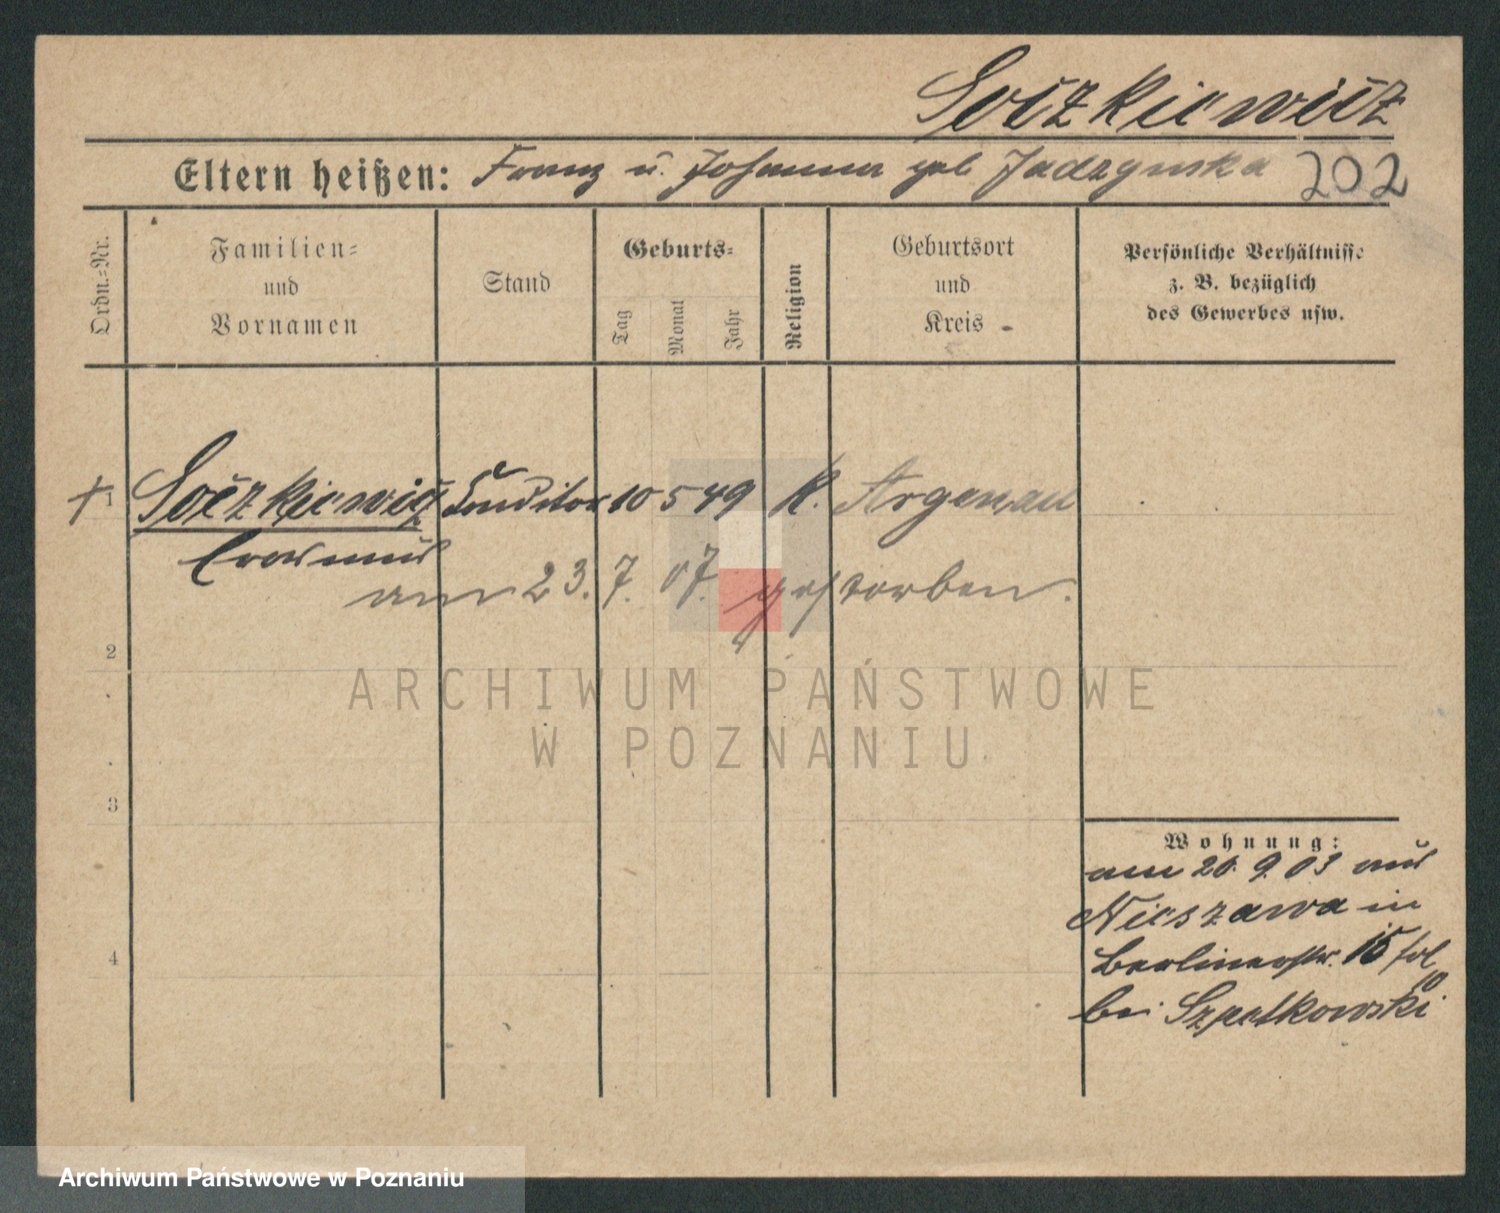 Soczkiewicz
Eltern heißen: Franz u. Johanna geb Jadzynska 202
Ordn.-Nr.
Familien-
und
Vornamen
Stand
Geburts-
Tag
Monat
Jahr
Religion
Geburtsort
und
Kreis
Persönliche Verhältnisse
z. B. bezüglich
des Gewerbes usw.
1 Soczkiewicz Conditor 10 5 49 K. Argenau
Erasmus
am 23. 7. 07. gestorben.
2
ARCHIWUM PAŃSTWOWE
W POZNANIU
3
Wohnung:
am 9 03 aus
Nieszawa in
Berlinerstr. 15
4
bei Szpetkowski
Archiwum Państwowe w Poznaniu